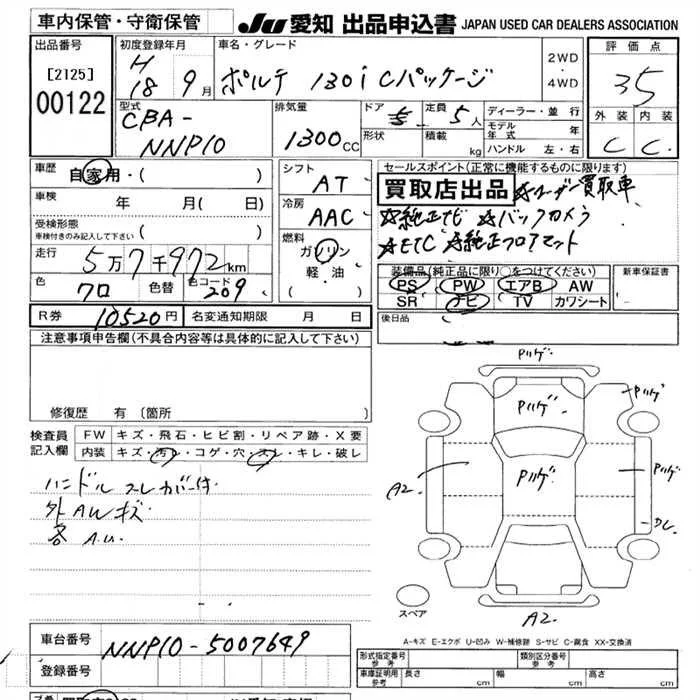 車内保管・守衛保管
JU 愛知 出品申込書 JAPAN USED CAR DEALERS ASSOCIATION
出品番号
[2125]
00122
初度登録年月
H18 9月
車名・グレード
ポルテ 130i Cパッケージ
2WD
・
4WD
評価点
3.5
外装 内装
C C
型式
CBA-
NNP10
排気量
1300 CC
ドア 5
定員 5人
形状
積載 kg
ディーラー・並行
モデル年式 年
ハンドル 左・右
車歴
自家用・( )
車検 年 月( 日)
受検形態
車検付きのみ記入して下さい ( )
走行
5万7千972km
色 クロ
色替
色コード 209
シフト
AT
冷房
AAC
燃料
ガソリン
軽油
( )
セールスポイント(正常に機能するものに限ります)
買取店出品 ☆ユーザー買取車
☆純正ナビ ☆バックカメラ
☆ETC ☆純正フロアマット
装備品(純正品に限り○をつけてください)
PS PW エアB AW
SR ナビ TV カワシート
新車保証書
後日品
R券 10520円
名変通知期限 月 日
注意事項申告欄(不具合内容等は具体的に記入して下さい)
修復歴 有(箇所 )
検査員
記入欄
FW キズ・飛石・ヒビ割・リペア跡・X要
内装 キズ・汚レ・コゲ・穴・スレ・キレ・破レ
ハンドル スレ カバー付
外AWキズ
各 A.U.
Pハゲ
Pハゲ
Pハゲ
Pハゲ
Pハゲ
A2.
A2.
スペア
A-キズ E-エクボ U-凹み W-補修跡 S-サビ C-腐食 XX-交換済
車台番号 NNP10-5007649
登録番号
形式指定番号
参考
類別区分番号
参考
車庫証明用
参考
長さ cm
幅 cm
高さ cm